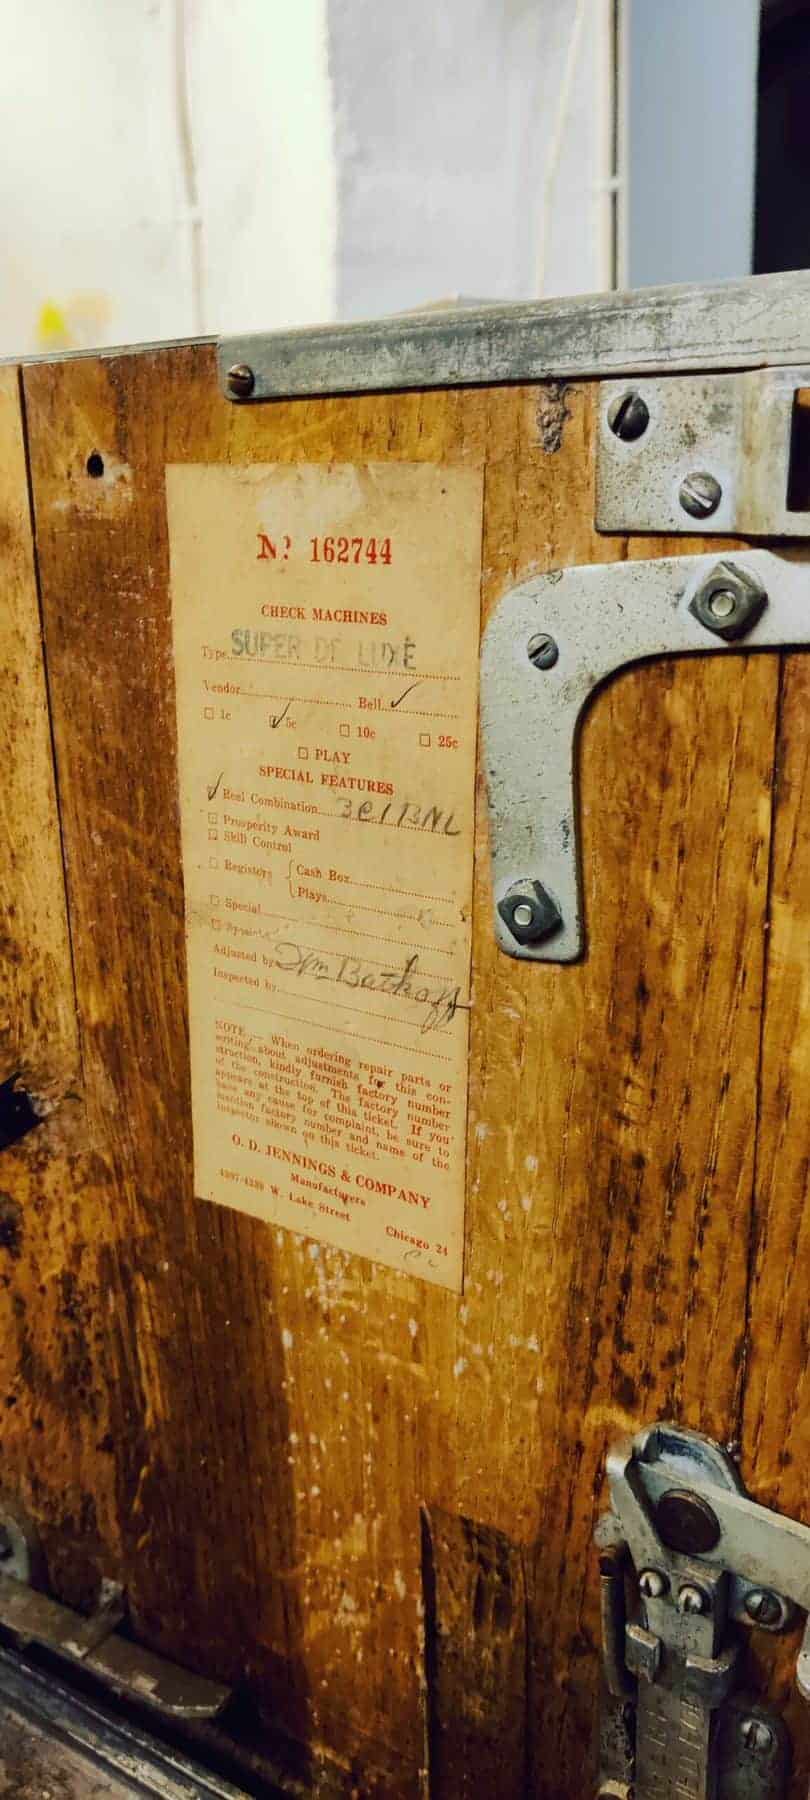 Nº 162744
CHECK MACHINES
Type SUPER DE LUXE
Vendor Bell ✓
☐ 1c ☑ 5c ☐ 10c ☐ 25c
☐ PLAY
SPECIAL FEATURES
☑ Reel Combination
☐ Prosperity Award
☐ Skill Control
☐ Registers { Cash Box
Plays
☐ Special
☐
Adjusted by Wm Batkoff
Inspected by
NOTE — When ordering repair parts or
writing about adjustments for this con-
struction, kindly furnish factory number
of the construction. The factory number
appears at the top of this ticket. If you
have any cause for complaint, be sure to
mention factory number and name of the
inspector shown on this ticket.
O. D. JENNINGS & COMPANY
Manufacturers
W. Lake Street
Chicago 24